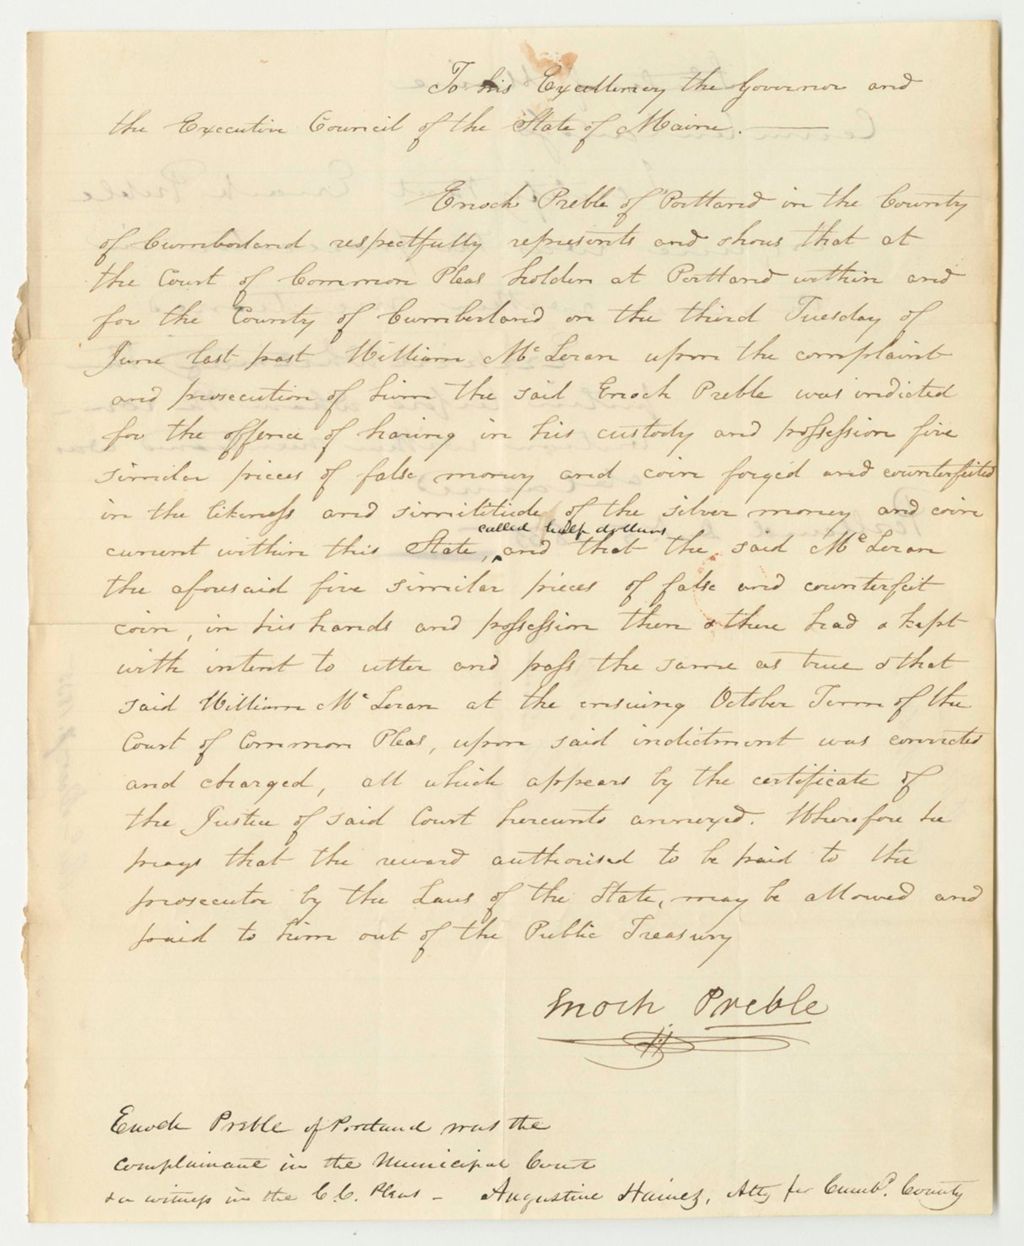 To his Excellency the Governor and
the Executive Council of the State of Maine.
Enoch Preble of Portland in the County
of Cumberland respectfully represents and shows that at
the Court of Common Pleas holden at Portland within and
for the County of Cumberland on the third Tuesday of
June last past William Mc Leran upon the complaint
and prosecution of him the said Enoch Preble was indicted
for the offence of having in his custody and possession five
similar pieces of false money and coin forged and counterfeited
in the likeness and similitude of the silver money and coin
called half dollars
current within this State, and that the said Mc Leran
the aforesaid five similar pieces of false and counterfeit
coin, in his hands and possession then & there had & kept
with intent to utter and pass the same as true & that
said William Mc Leran at the ensuing October Term of the
Court of Common Pleas, upon said indictment was convicted
and charged, all which appears by the certificate of
the Justice of said Court hereunto annexed. Wherefore he
prays that the reward authorised to be paid to the
prosecutor by the Laws of the State, may be allowed and
paid to him out of the Public Treasury
Enoch Preble
Enoch Preble of Portland was the
complainant in the Municipal Court
& a witness in the C. C. Pleas - Augustine Haines, Atty for Cumbd. County